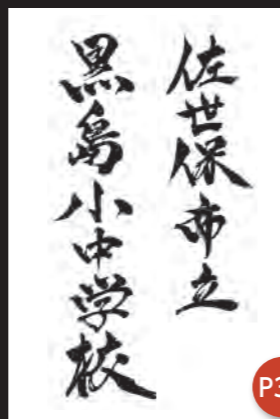 佐世保市立
黒島小中学校
P3